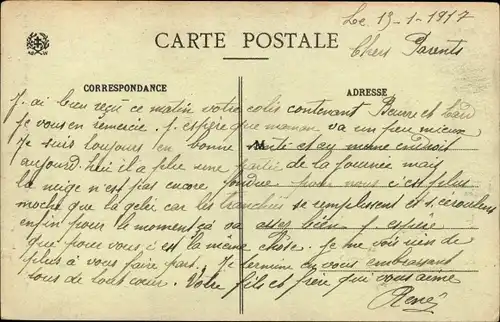 Le 13-1-1917
Chers Parents
CARTE POSTALE
CORRESPONDANCE
ADRESSE
J'ai bien reçu ce matin votre colis contenant Beurre et lard
Je vous en remercie. J'espère que maman va un peu mieux
Je suis toujours en bonne santé et au meme endroit
aujourd'hui il a plue une partie de la journée mais
la neige n'est pas encore fondue pour nous c'est plus
moche que la gelée car les tranchées se remplissent et s'ecroulent
enfin pour le moment ça va assez bien j'espère
que pour vous c'est la même chose. Je ne vois rien de
plus à vous faire part. Je termine en vous embrassant
tous de tout coeur. Votre fils et frère qui vous aime
René